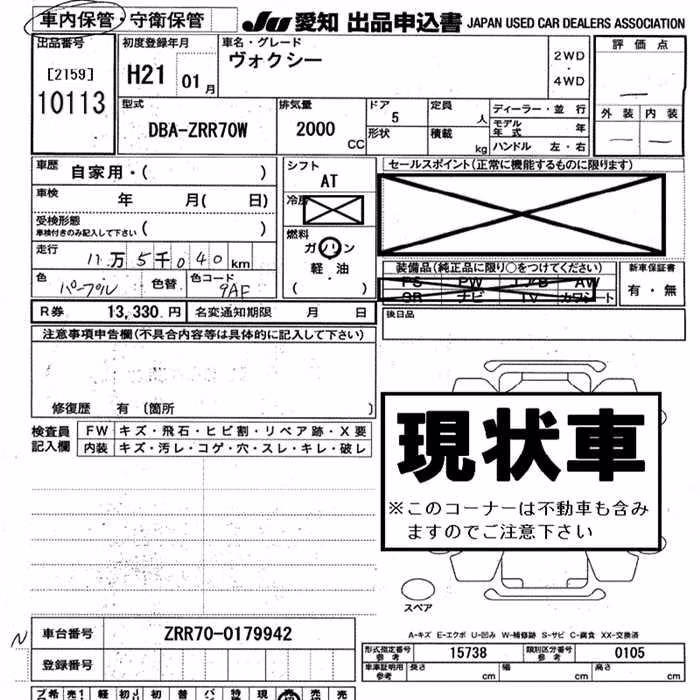 車内保管・守衛保管 JU 愛知 出品申込書 JAPAN USED CAR DEALERS ASSOCIATION
出品番号 初度登録年月 車名・グレード 評価点
[2159] H21 01月 ヴォクシー 2WD・4WD
10113
型式 排気量 ドア 定員 ディーラー・並行 外装 内装
DBA-ZRR70W 2000 CC 5 人 モデル年式 年
形状 積載 kg ハンドル 左・右
車歴 自家用・( ) シフト セールスポイント(正常に機能するものに限ります)
AT
車検 年 月( 日) 冷房
受検形態 車検付きのみ記入して下さい ( ) 燃料
ガソリン
走行 11万5千040km 軽・油
( )
装備品(純正品に限り○をつけてください) 新車保証書
PS PW エアB AW 有・無
SR ナビ TV カワシート
色 パープル 色替 色コード 9AF
R券 13,330円 名変通知期限 月 日 後日品
注意事項申告欄(不具合内容等は具体的に記入して下さい)
修復歴 有 〔箇所 〕
検査員記入欄 FW キズ・飛石・ヒビ割・リペア跡・X要
内装 キズ・汚レ・コゲ・穴・スレ・キレ・破レ
現状車
※このコーナーは不動車も含み
ますのでご注意下さい
スペア
A-キズ E-エクボ U-凹み W-補修跡 S-サビ C-腐食 XX-交換済
N 車台番号 ZRR70-0179942
形式指定番号 参考 15738 類別区分番号 参考 0105
登録番号
車庫証明用 参考 長さ cm 幅 cm 高さ cm